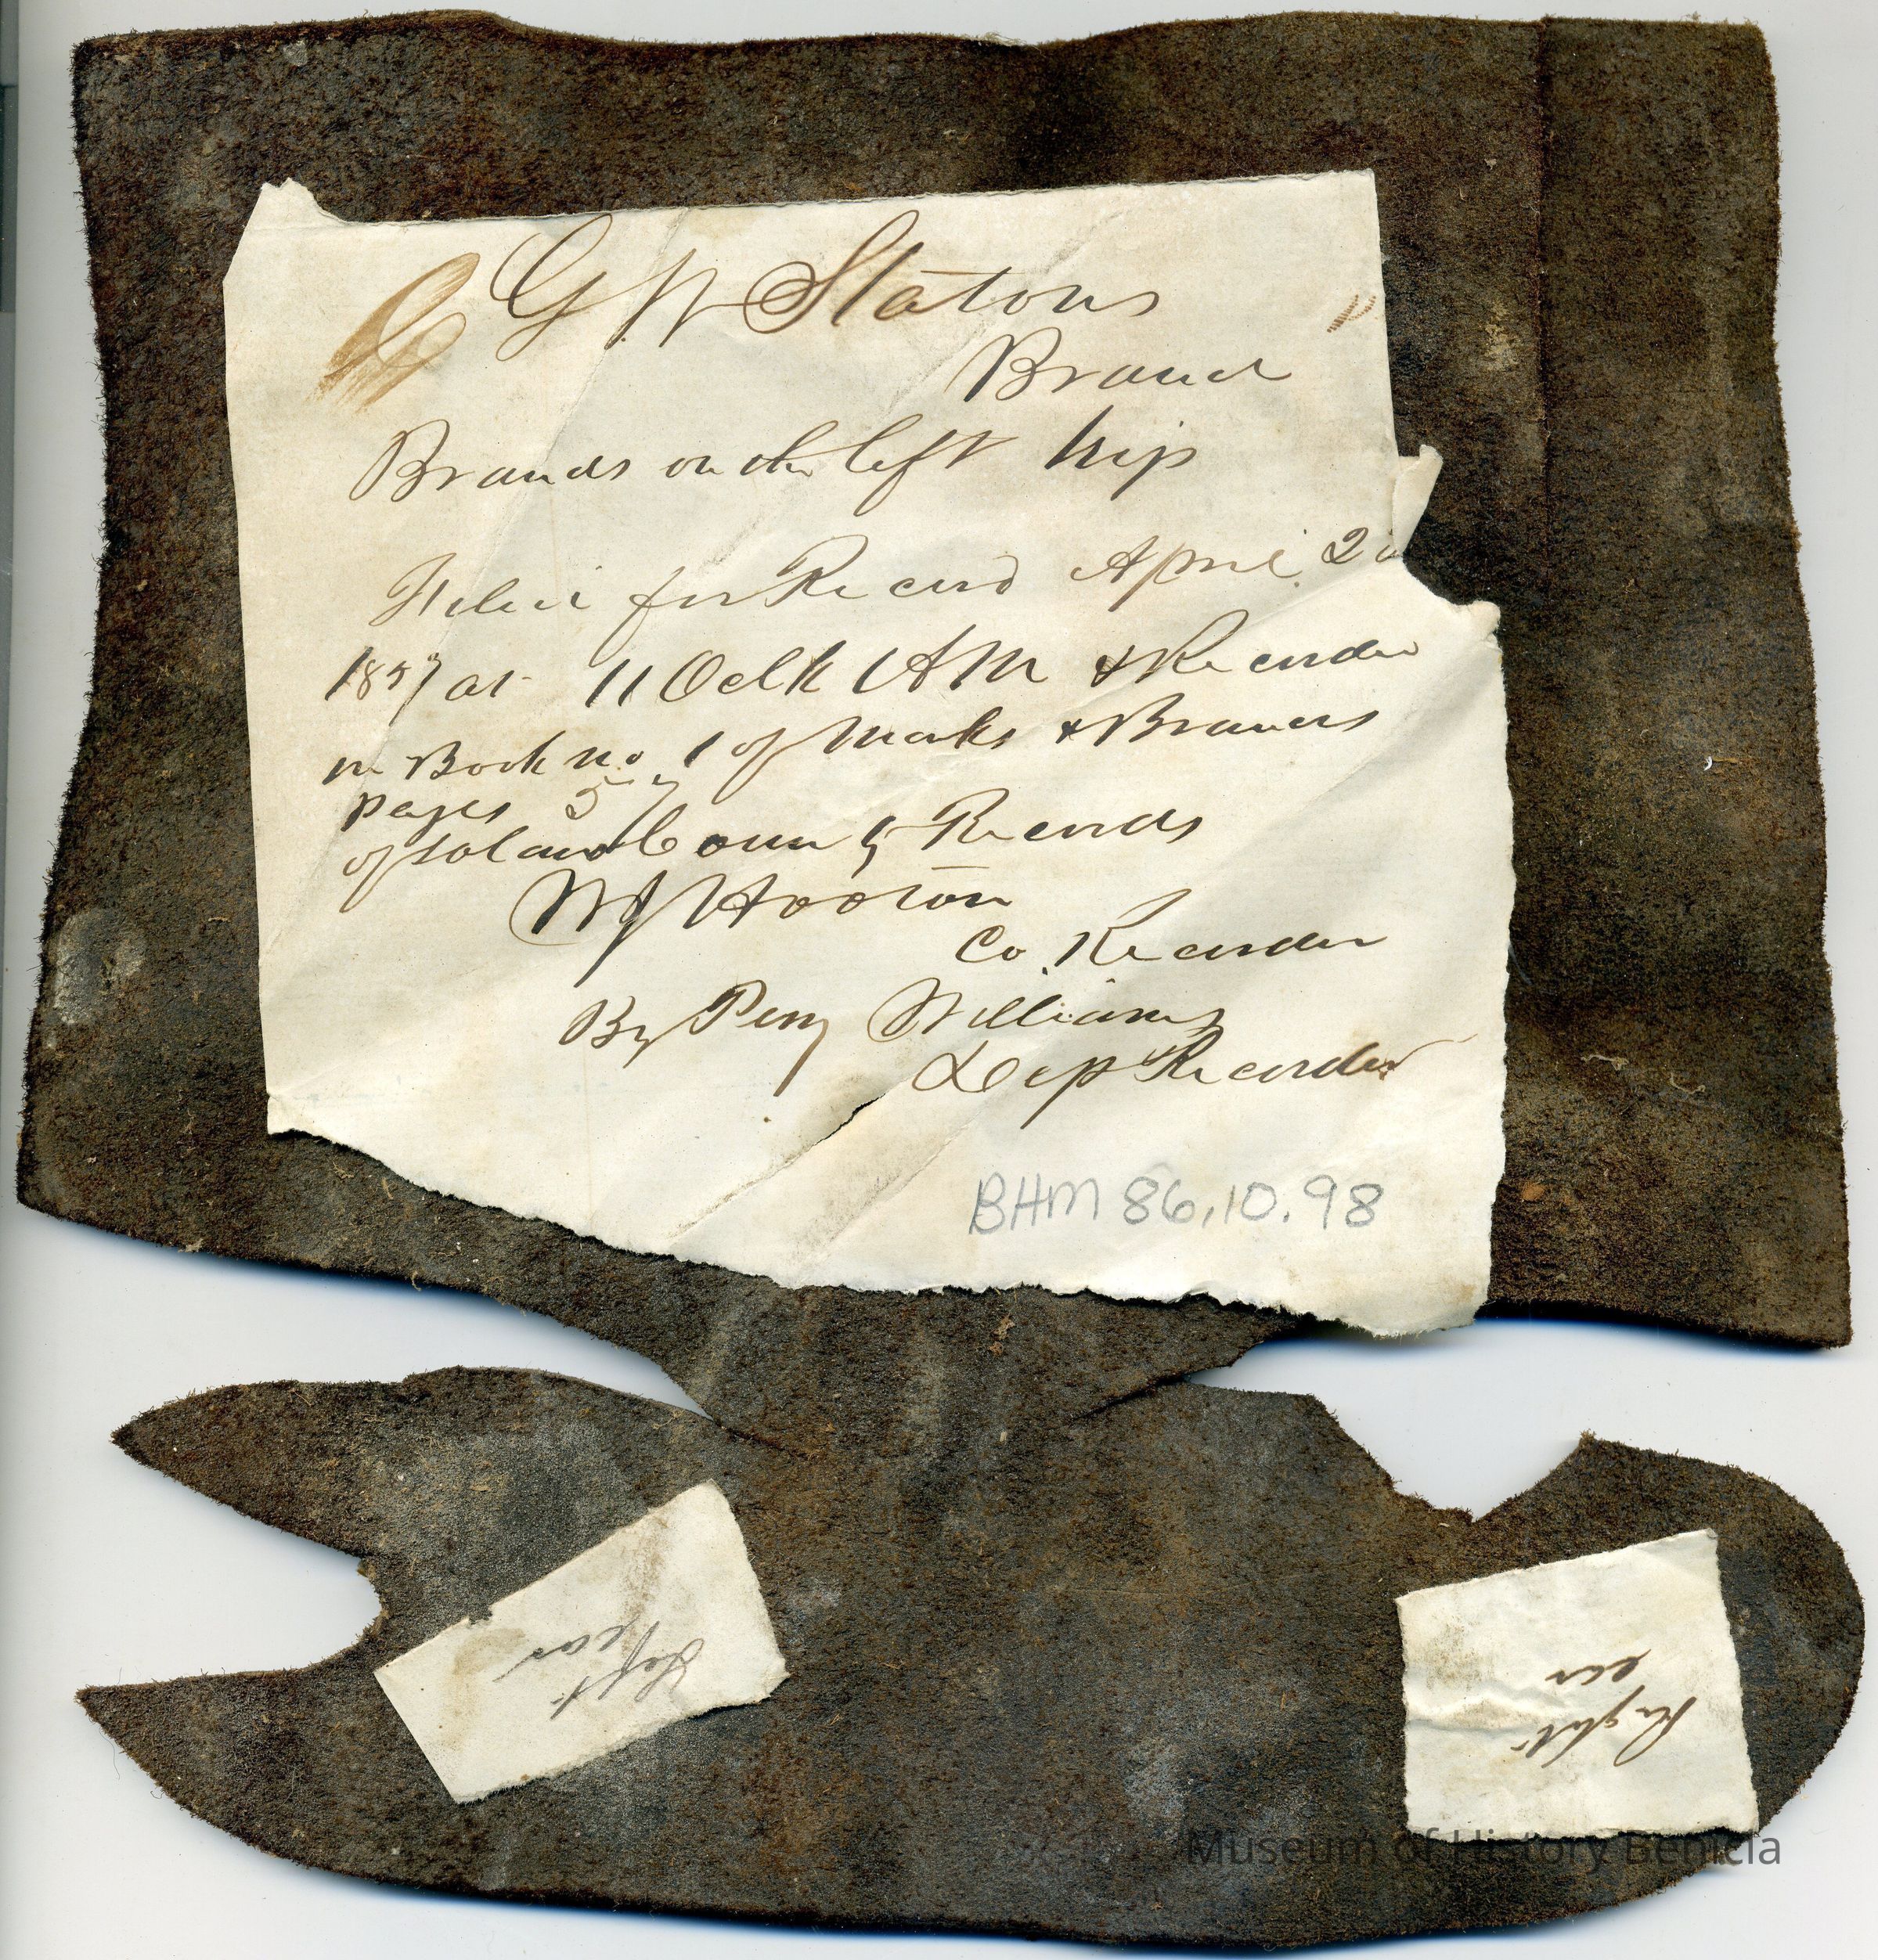 G W Statons
Brand
Brands on the left hip
Filed for Record April 2
1857 at 11 Oclk AM & Recorded
in Book no. 1 of Marks & Brands
pages 57
of Solano County Records
W J Hooton
Co. Recorder
By Perry Williams
Dep Recorder
BHM 86.10.98
Left
ear
Right
ear
Museum of History Benicia